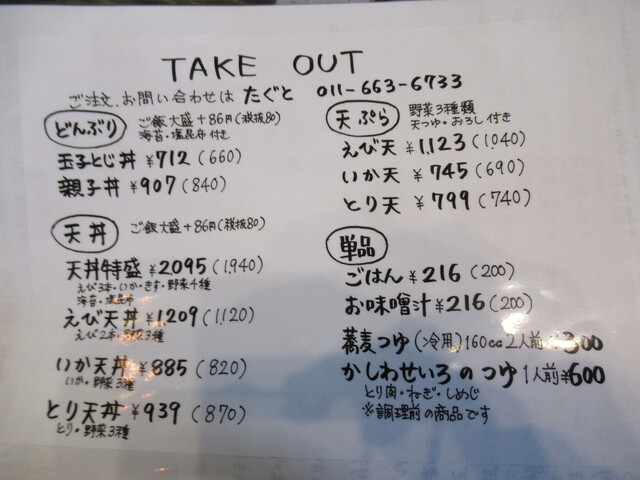 TAKE OUT
ご注文、お問い合わせは たぐと 011-663-6733
どんぶり
ご飯大盛+86円(税抜80)
海苔・塩昆布付き
玉子とじ丼 ¥712 (660)
親子丼 ¥907 (840)
天丼 ご飯大盛+86円(税抜80)
天丼特盛 ¥2095 (1,940)
えび3本・いか・きす・野菜4種
海苔・塩昆布
えび天丼 ¥1209 (1,120)
えび2本・野菜3種
いか天丼 ¥885 (820)
いか・野菜3種
とり天丼 ¥939 (870)
とり・野菜3種
天ぷら
野菜3種類
天つゆ・おろし付き
えび天 ¥1,123 (1040)
いか天 ¥745 (690)
とり天 ¥799 (740)
単品
ごはん ¥216 (200)
お味噌汁 ¥216 (200)
蕎麦つゆ(冷用)160cc 2人前 ¥300
かしわせいろのつゆ 1人前 ¥600
とり肉・ねぎ・しめじ
※調理前の商品です